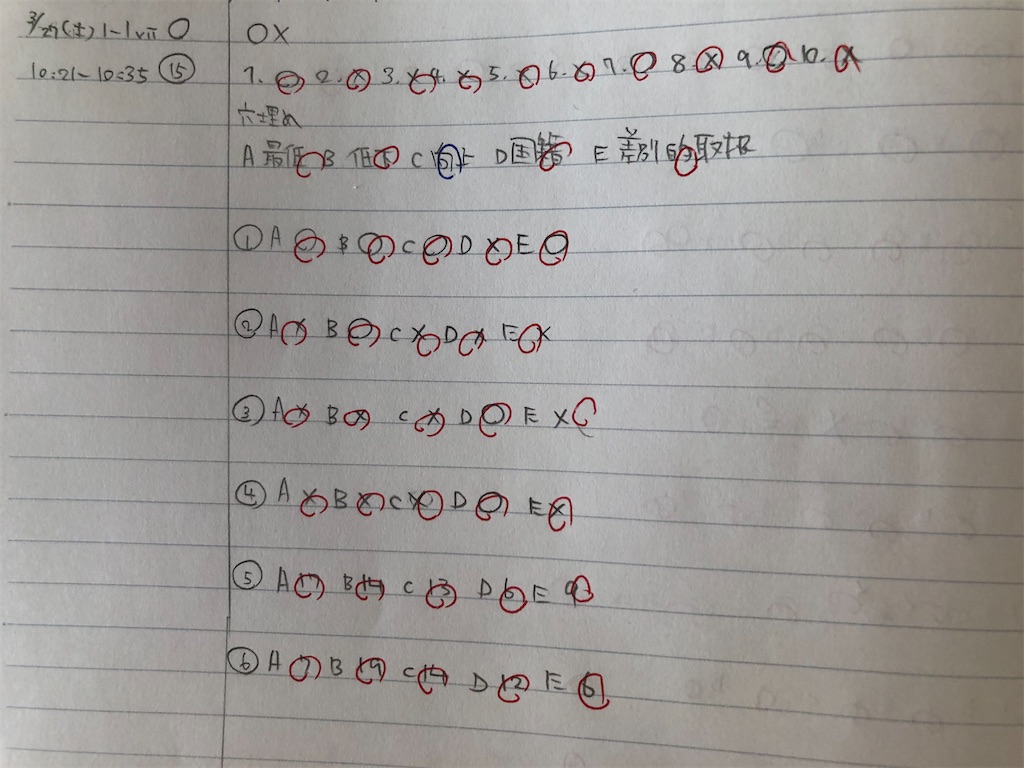 3/27(土) 1-1 vii ○
○×
10:21~10:35 ⑮
1. ○ 2. × 3. × 4. × 5. ○ 6. × 7. ○ 8. × 9. ○ 10. ×
穴埋め
A 最低 B 低下 C 向上 D 国籍 E 差別的取扱
① A ○ B ○ C ○ D × E ○
② A × B ○ C × D × E ×
③ A × B × C × D ○ E ×
④ A × B × C × D ○ E ×
⑤ A 17 B 14 C 13 D 6 E 9
⑥ A 7 B 19 C 14 D 12 E 6